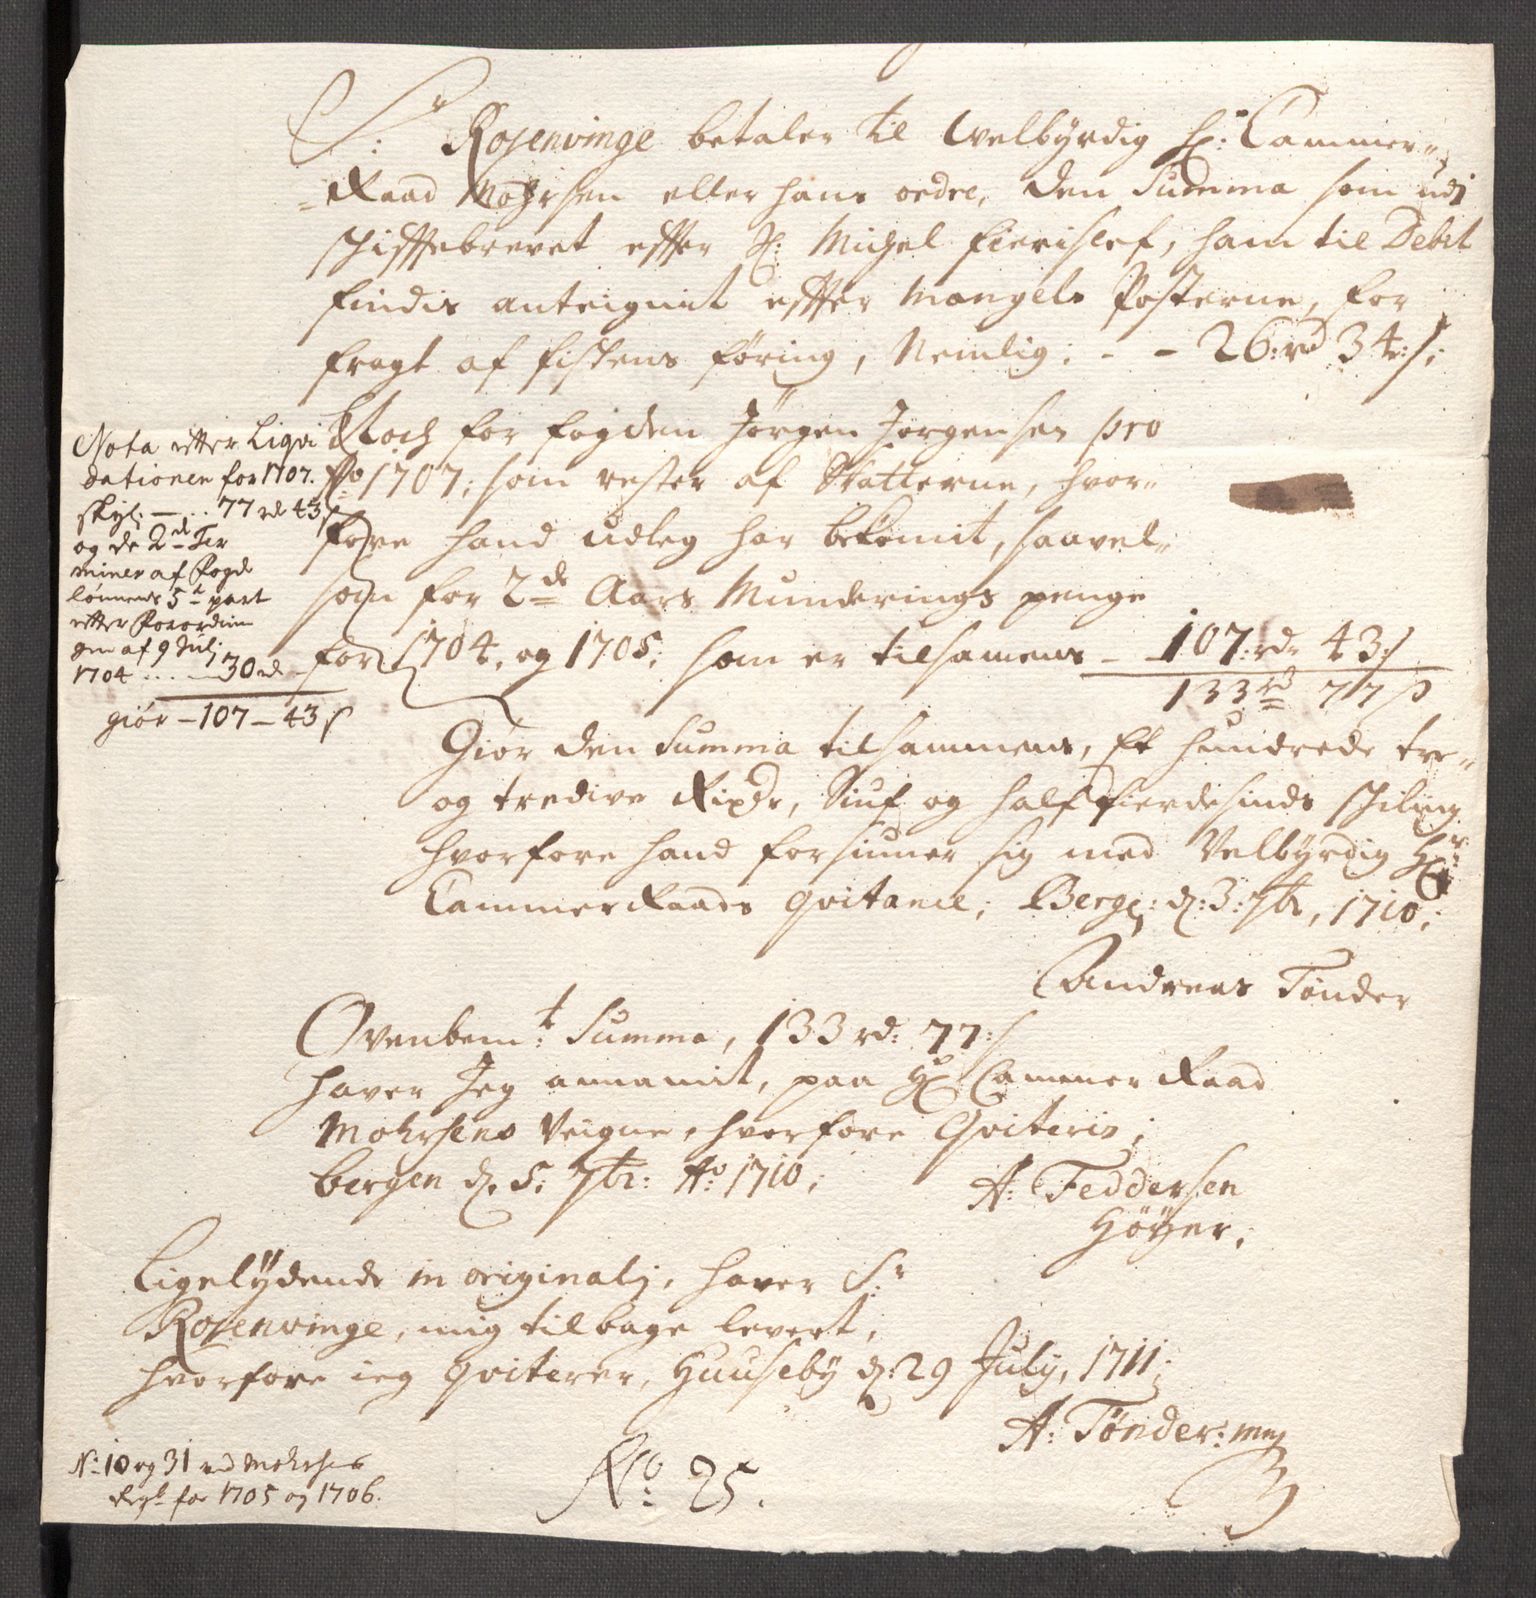 Sr: Rosenvinge betaler til welbyrdig H: Cammer-
Raad Mohrsen eller hans ordre, den Summa som udj
schifftebrevet efter H: Michel fierislef, ham til Debet
findis anteignit efter Mangels Posterne, for
fragt af fiskens føring, Nemlig: - - 26: rd 34: s:
Noch for fogden Jørgen Jørgensen pro
Ao 1707; som rester af Skatterne, hvor-
fore hand udleg har bekomit, saavel-
som for 2de Aars Munderings penge
for 1704, og 1705; som er tilsamens - 107: rdr 43: s
133 rd 77 s
Nota effter Liqvi
dationen for 1707.
skyl: — .. 77 rd 43 s
og de 2de Ter
miner af Fogd
lønnens 5te part
effter Forordnin
gen af 9 Julj
1704 ... — 30 rd -
giør — 107 — 43 s
Giør den Summa tilsammens, Et hundrede tre-
og tredive Rixdr, Siuf og halffierdesinds schiling
hvorfore hand forsiuner sig med Velbyrdig Hr:
Cammer Raads qvitance; Bergen: d: 3: 7br, 1710;
Andreas Tønder
Ovenbemt: Summa, 133 rd: 77: s
haver Jeg annamit, paa Hr Cammer Raad
Mohrsens Veigne, hvorfore Qviteris;
bergen d. 5; 7br: Ao: 1710;
A: Feddersen
Høyer;
Ligelydende in originalj, haver Sr:
Rosenvinge, mig tilbage levert,
hvorfore ieg qviterer, Huuseby d: 29 July, 1711;
A: Tønder: mp
N: 10 og 31 ved Mohrsens
Regsk for 1705 og 1706.
No: 25.